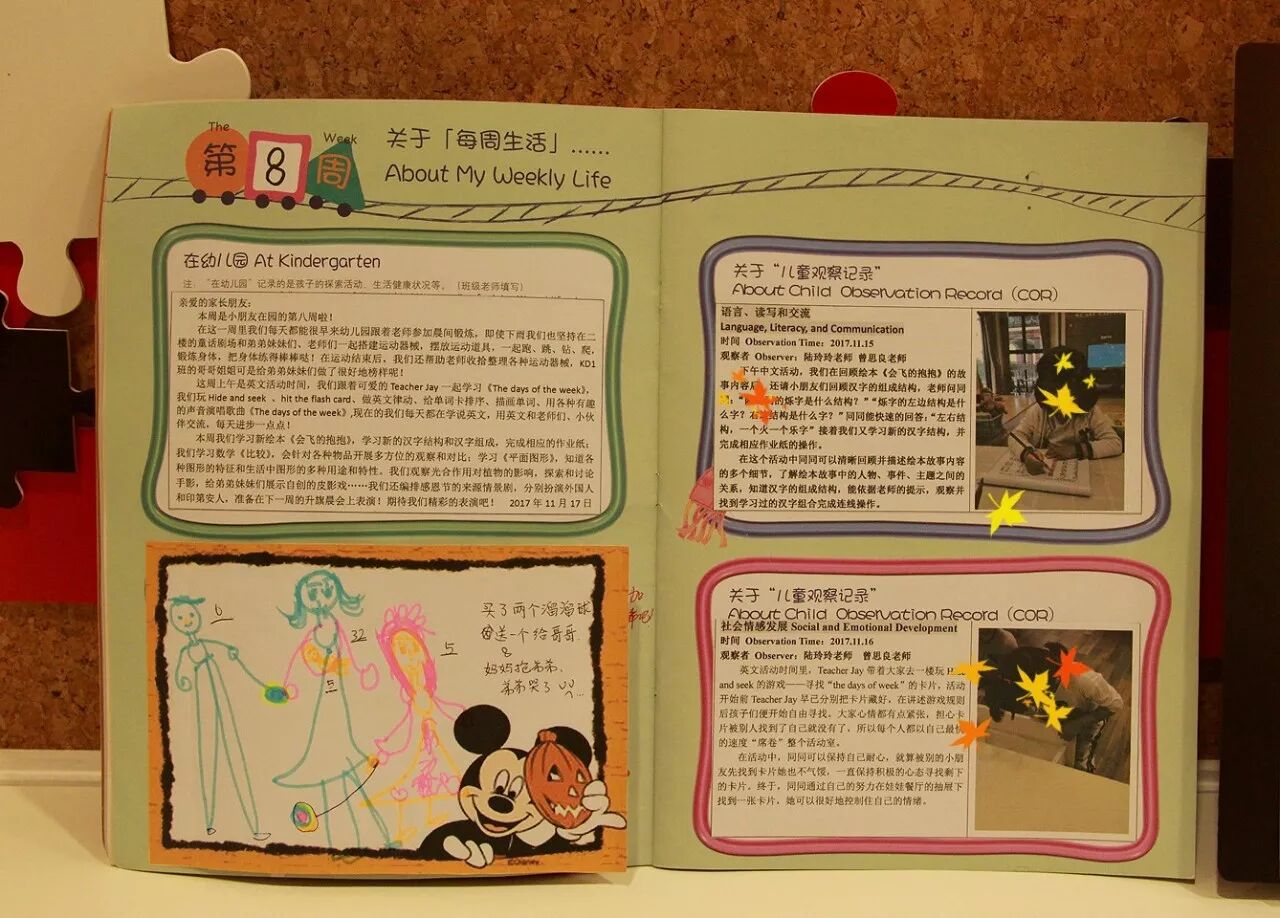 The
Week
第8周
关于「每周生活」......
About My Weekly Life
在幼儿园 At Kindergarten
注："在幼儿园"记录的是孩子的探索活动、生活健康状况等。（班级老师填写）
亲爱的家长朋友：
本周是小朋友在园的第八周啦！
在这一周里我们每天都能很早来幼儿园跟着老师参加晨间锻炼，即使下雨我们也坚持在二
楼的童话剧场和弟弟妹妹们、老师们一起搭建运动器械，摆放运动道具，一起跑、跳、钻、爬，
锻炼身体，把身体练得棒棒哒！在运动结束后，我们还帮助老师收拾整理各种运动器械，KD1
班的哥哥姐姐可是给弟弟妹妹们做了很好地榜样呢！
这周上午是英文活动时间，我们跟着可爱的 Teacher Jay 一起学习《The days of the week》，
我们玩 Hide and seek 、hit the flash card、做英文律动、给单词卡排序、描画单词、用各种有趣
的声音演唱歌曲《The days of the week》,现在的我们每天都在学说英文，用英文和老师们、小伙
伴交流，每天进步一点点！
本周我们学习新绘本《会飞的抱抱》，学习新的汉字结构和汉字组成，完成相应的作业纸；
我们学习数学《比较》，会针对各种物品开展多方位的观察和对比；学习《平面图形》，知道各
种图形的特征和生活中图形的多种用途和特性。我们观察光合作用对植物的影响，探索和讨论
手影，给弟弟妹妹们展示自创的皮影戏……我们还编排感恩节的来源情景剧，分别扮演外国人
和印第安人，准备在下一周的升旗晨会上表演！期待我们精彩的表演吧！ 2017 年 11 月 17 日
买了两个溜溜球
送一个给哥哥.
8
妈妈抱弟弟、
弟弟哭了
6
32
5
5
©Disney
关于"儿童观察记录"
About Child Observation Record (COR)
语言、读写和交流
Language, Literacy, and Communication
时间 Observation Time：2017.11.15
观察者 Observer：陆玲玲老师 曾思良老师
下午中文活动，我们在回顾绘本《会飞的抱抱》的故
事内容后，还请小朋友们回顾汉字的组成结构，老师问同
的烁字是什么结构？""烁字的左边结构是什
么字？右边结构是什么字？"同同能快速的回答："左右结
构，一个火一个乐字"接着我们又学习新的汉字结构，并
完成相应作业纸的操作。
在这个活动中同同可以清晰回顾并描述绘本故事内容
的多个细节，了解绘本故事中的人物、事件、主题之间的
关系，知道汉字的组成结构，能依据老师的提示，观察并
找到学习过的汉字组合完成连线操作。
关于"儿童观察记录"
About Child Observation Record (COR)
社会情感发展 Social and Emotional Development
时间 Observation Time：2017.11.16
观察者 Observer：陆玲玲老师 曾思良老师
英文活动时间里，Teacher Jay 带着大家去一楼玩
and seek 的游戏——寻找"the days of week"的卡片，活动
开始前 Teacher Jay 早已分别把卡片藏好，在讲述游戏规则
后孩子们便开始自由寻找。大家心情都有点紧张，担心卡
片被别人找到了自己就没有了，所以每个人都以自己最快
的速度"席卷"整个活动室。
在活动中，同同可以保持自己耐心，就算被别的小朋
友先找到卡片她也不气馁，一直保持积极的心态寻找剩下
的卡片。终于，同同通过自己的努力在娃娃餐厅的抽屉下
找到一张卡片，她可以很好地控制住自己的情绪。